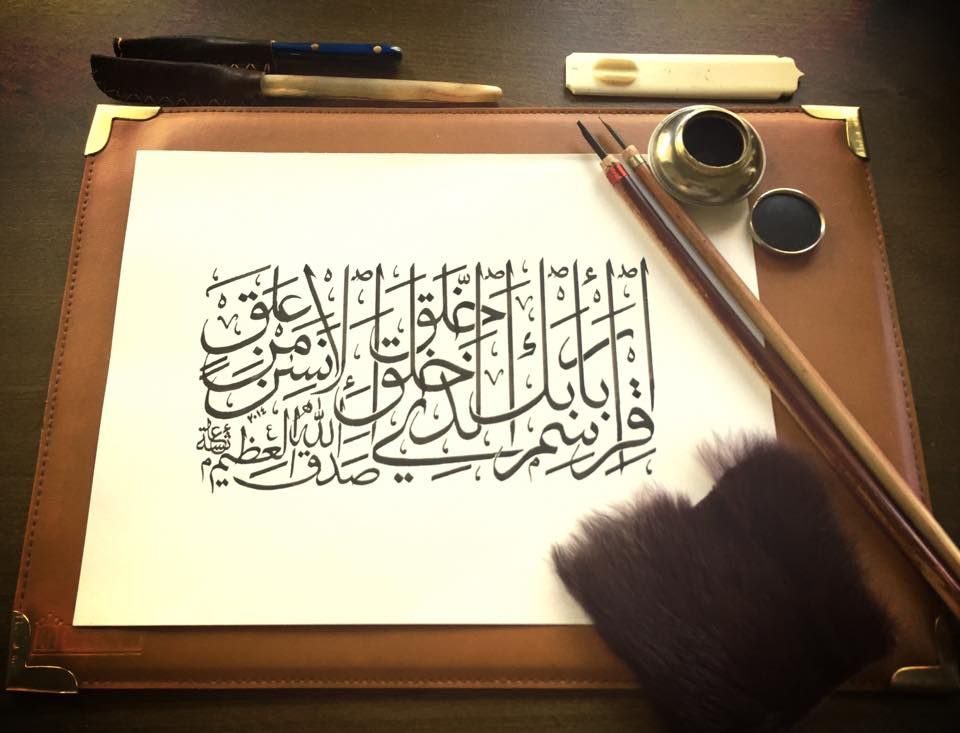 اقرأ باسم ربك الذي خلق خلق الإنسن من علق
صدق الله العظيم
٢٠١٤